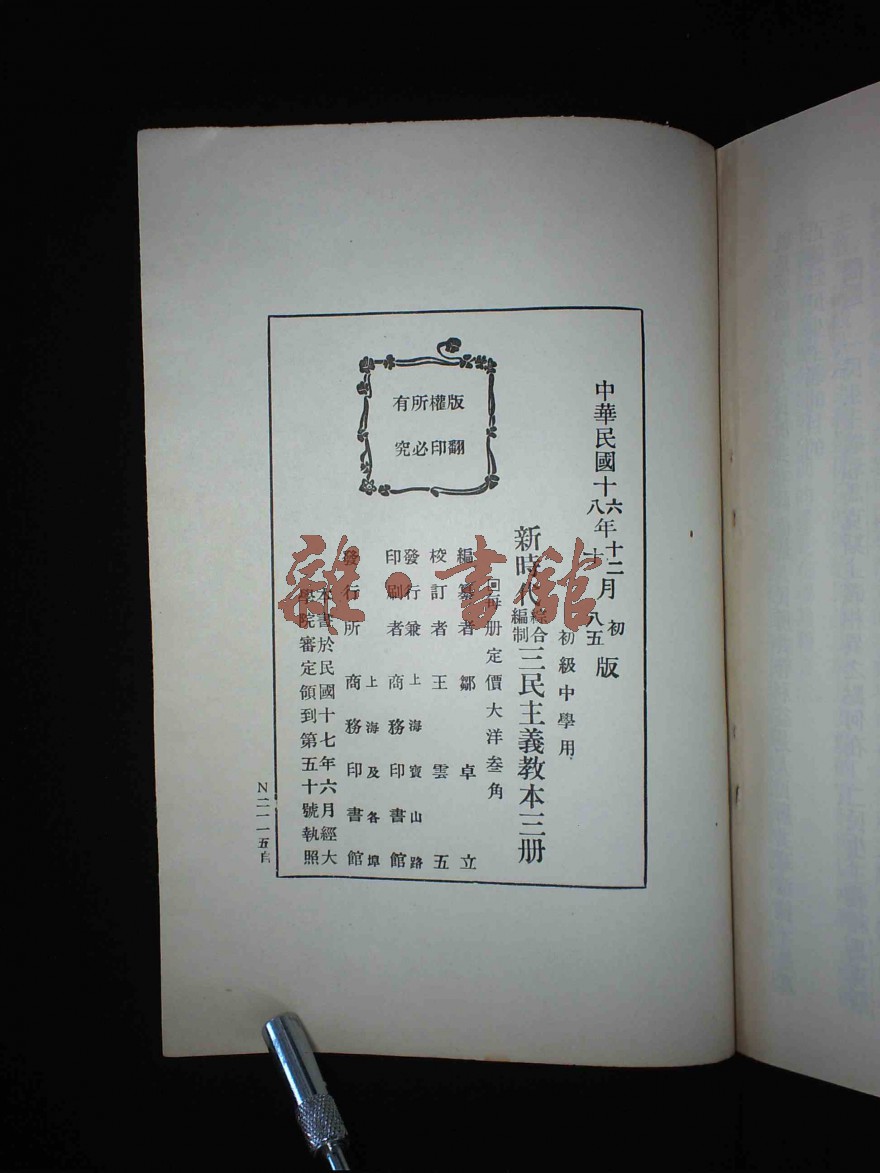 中華民國十六年十二月初版
八年十八五版
初級中學用
新時代綜合編制三民主義教本三册
回每册定價大洋叁角
編纂者 鄒卓立
校訂者 王雲五
發行兼印刷者 上海寶山路 商務印書館
發行所 上海及各埠 商務印書館
本書於民國十七年六月經大
學院審定領到第五十號執照
版權所有
翻印必究
N二一一五自
雜·書館